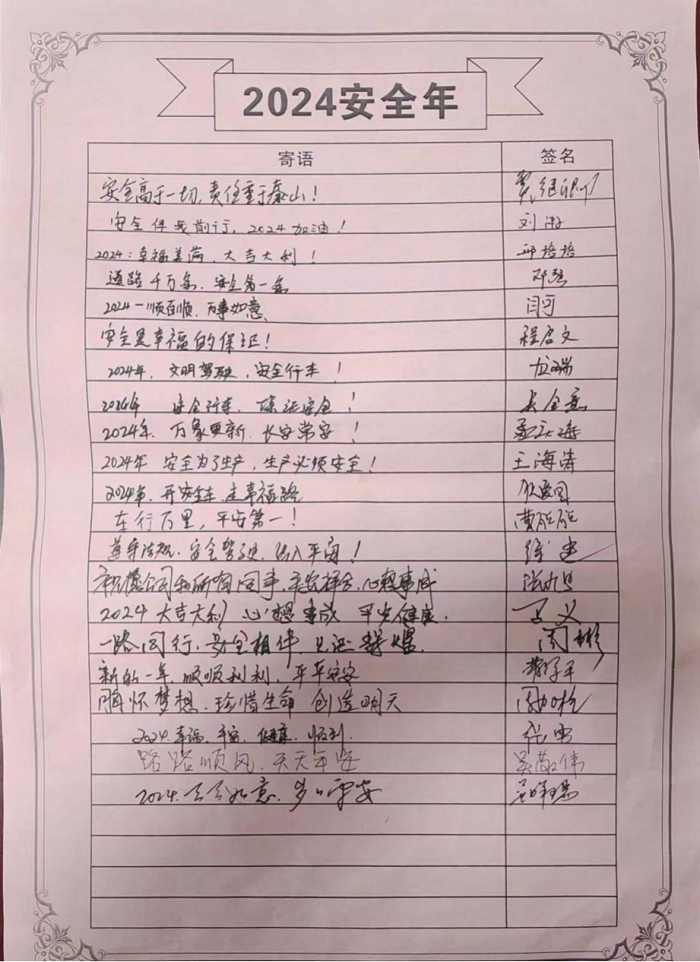 2024安全年
寄语 签名
安全高于一切,责任重于泰山!
安全伴我前行,2024加油! 刘
2024:幸福美满、大吉大利! 邱培培
道路千万条,安全第一条 邓
2024一顺百顺,万事如意、 闫可
安全是幸福的保证! 程启文
2024年,文明驾驶,安全行车!
2024年 安全行车,保证安全!
2024年,万象更新,长安常安!
2024年 安全为了生产,生产必须安全! 王海涛
2024年,开安全车,走幸福路
车行万里,平安第一! 曹
遵守法规,安全驾驶,
祝愿公司和所有同事,心想事成
2024大吉大利 心想事成 平安健康. 马义
一路同行,安全相伴,见证辉煌. 闵彬
新的一年,顺顺利利,平平安安
胸怀梦想,珍惜生命 创造明天
2024.幸福、平安、健康、顺利.
路路顺风,天天平安 吴敬伟
2024.天天如意,岁岁平安